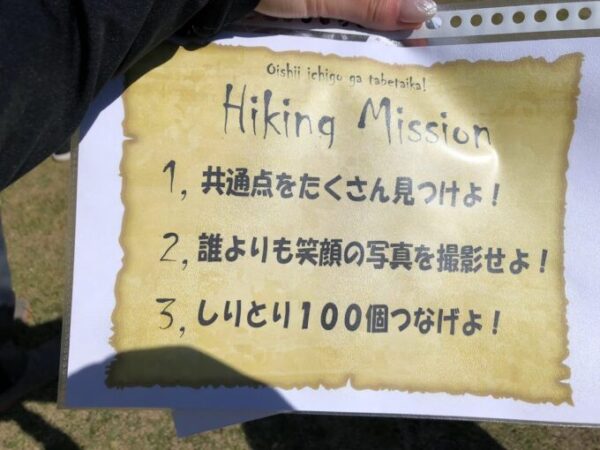 Oishii ichigo ga tabetaika!
Hiking Mission
1, 共通点をたくさん見つけよ！
2, 誰よりも笑顔の写真を撮影せよ！
3, しりとり１００個つなげよ！